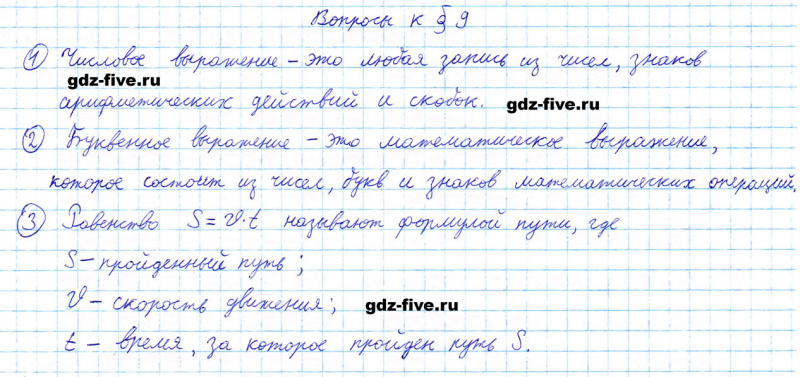 Вопросы к § 9
1 Числовое выражение – это любая запись из чисел, знаков
gdz-five.ru
арифметических действий и скобок. gdz-five.ru
2 Буквенное выражение – это математическое выражение,
которое состоит из чисел, букв и знаков математических операций.
3 Равенство S = v·t называют формулой пути, где
S – пройденный путь;
v – скорость движения; gdz-five.ru
t – время, за которое пройден путь S.